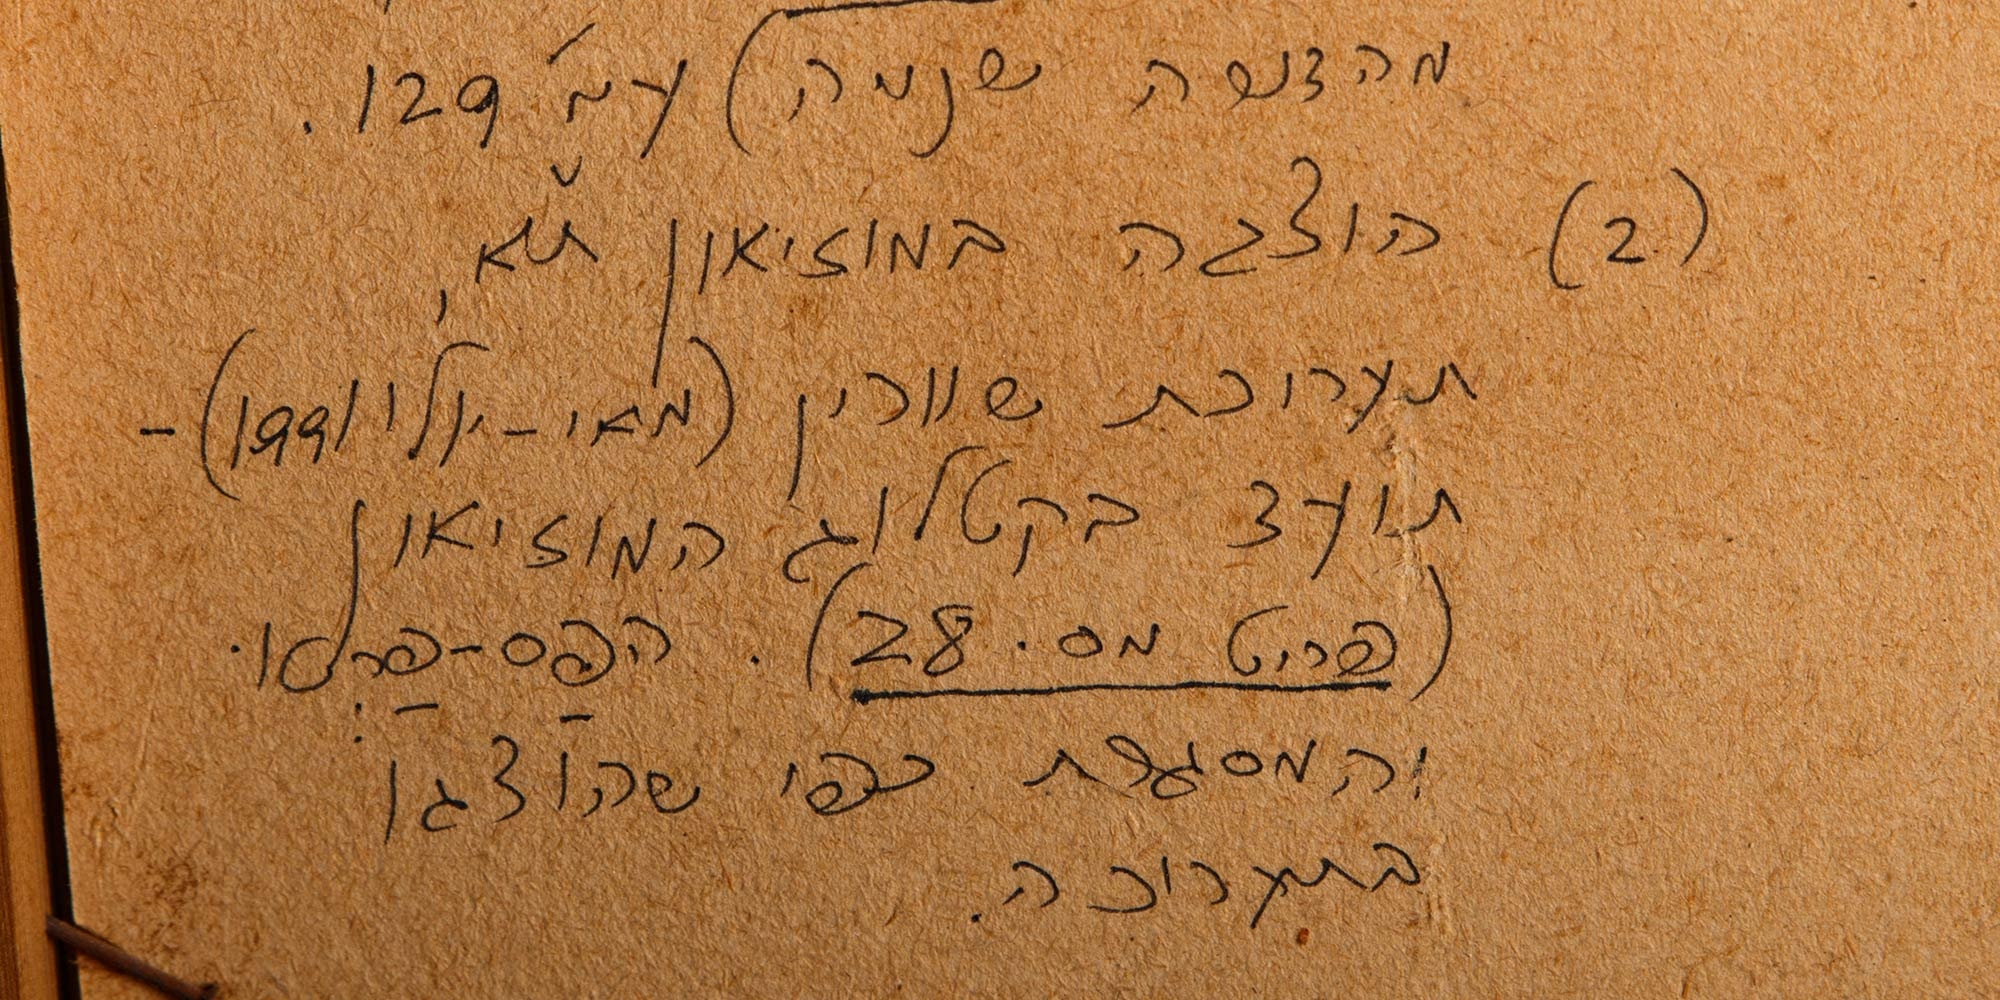 עמ' 129.
(2) הוצגה במוזיאון ת"א,
תערוכת שוורין (מאי-יולי 1991) -
תועד בקטלוג המוזיאון
(פריט מס. 28). הפַס-פַרְטו.
והמסגרת כפי שהוצגו
בתערוכה.